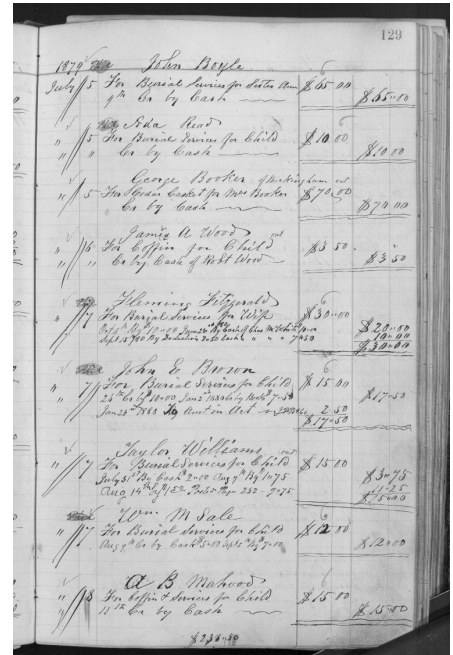 129
1879 John Boyle
July 5 For Burial Services for Sister Ann $65 00
9th Cr by Cash $65-00
Ada Read
" 5 For Burial Services for Child $10 00
" " Cr by Cash $10 00
George Booker of Buckingham
" 5 For Casket for Mrs Booker $70 00
Cr by Cash $70 00
James A Wood
" 6 For Coffin for Child $3 50
" Cr by Cash of Robt Wood $3 50
Fleming Fitzgerald
" 7 For Burial Services for Wife $30-00
$20-00
10-00
$30-00
John E Brown
" 7 For Burial Services for Child $15 00
$17-50
Jan 23rd 1880 To Amt in Act 2 50
$17-50
Taylor Williams
" 7 For Burial Services for Child $15 00
July 31st By Cash 2-00 Aug 7th By $1-75 $3-75
Aug 14th Page 252 11-25
$15-00
Wm M Sale
" 7 For Burial Services for Child $12 00
Aug 9th Cr by Cash $5-00 By $7-00 $12-00
A B Mahood
" 8 For Coffin & Services for Child $15 00
" 11th Cr by Cash $15-00